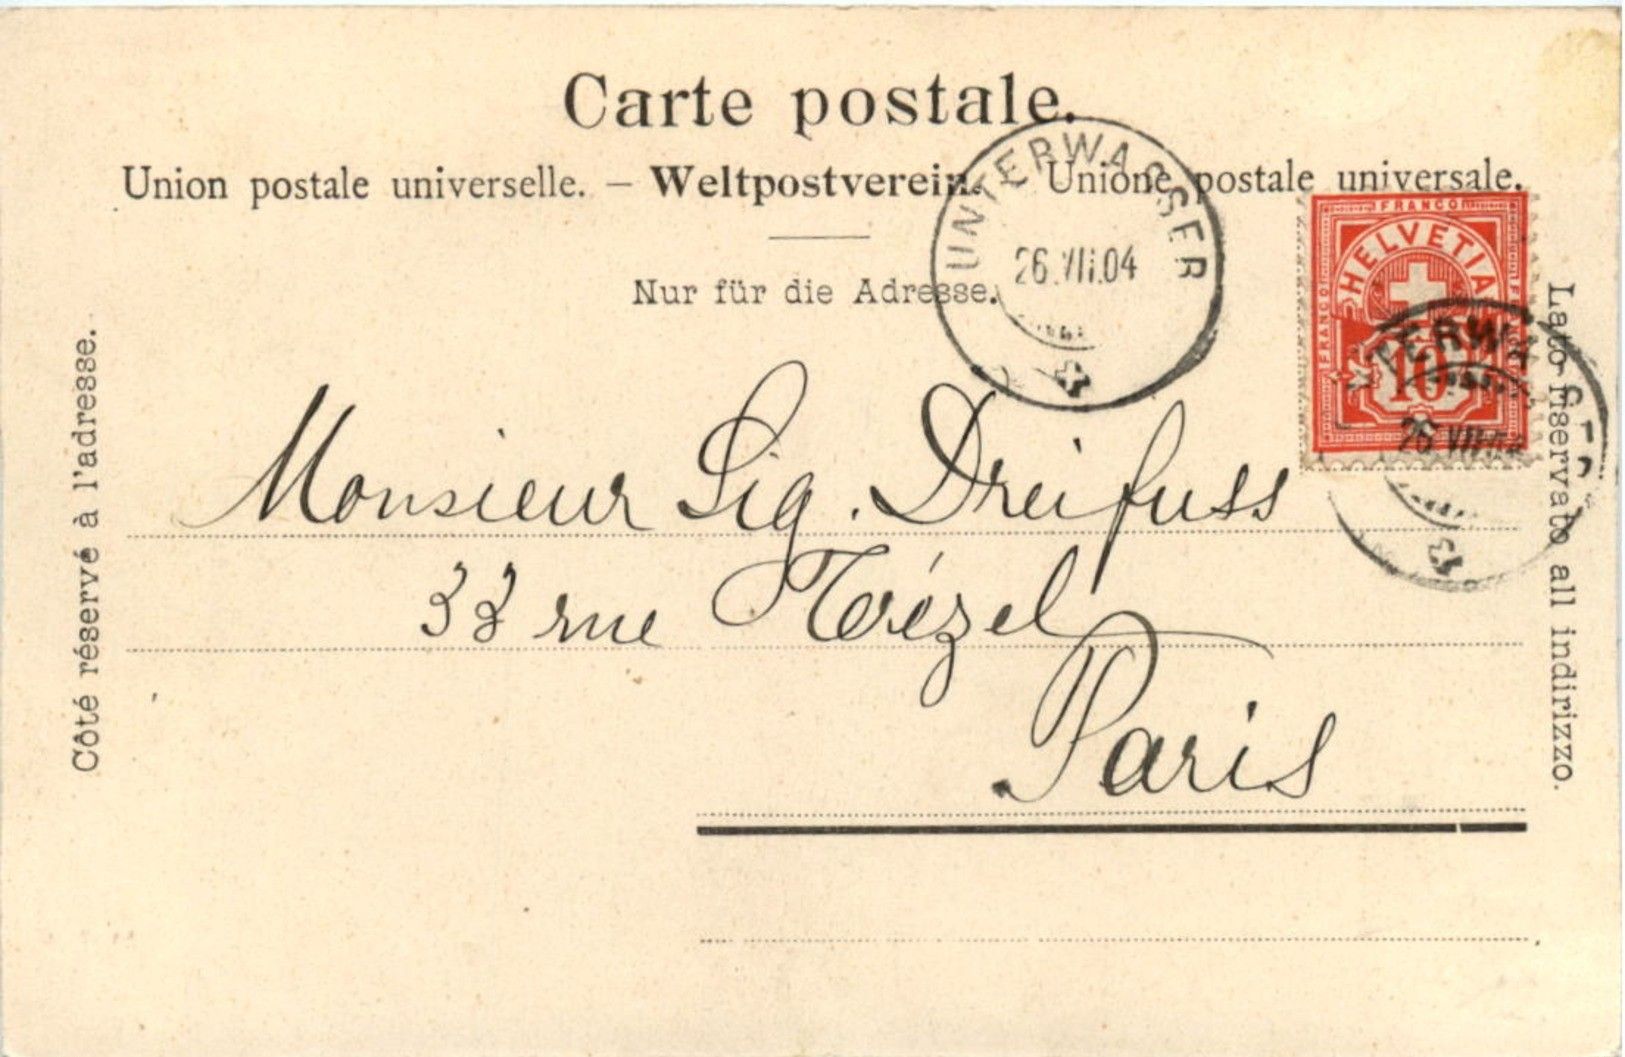 Carte postale.
Union postale universelle. – Weltpostverein. Unione postale universale.
Nur für die Adresse.
Côté réservé à l'adresse.
Lato riservato all indirizzo.
UNTERWASSER
26.VII.04
FRANCO
FRANCO
HELVETIA
10
TERWA
26 VII.04
Monsieur Sig. Dreifuss
33 rue Trézel
Paris